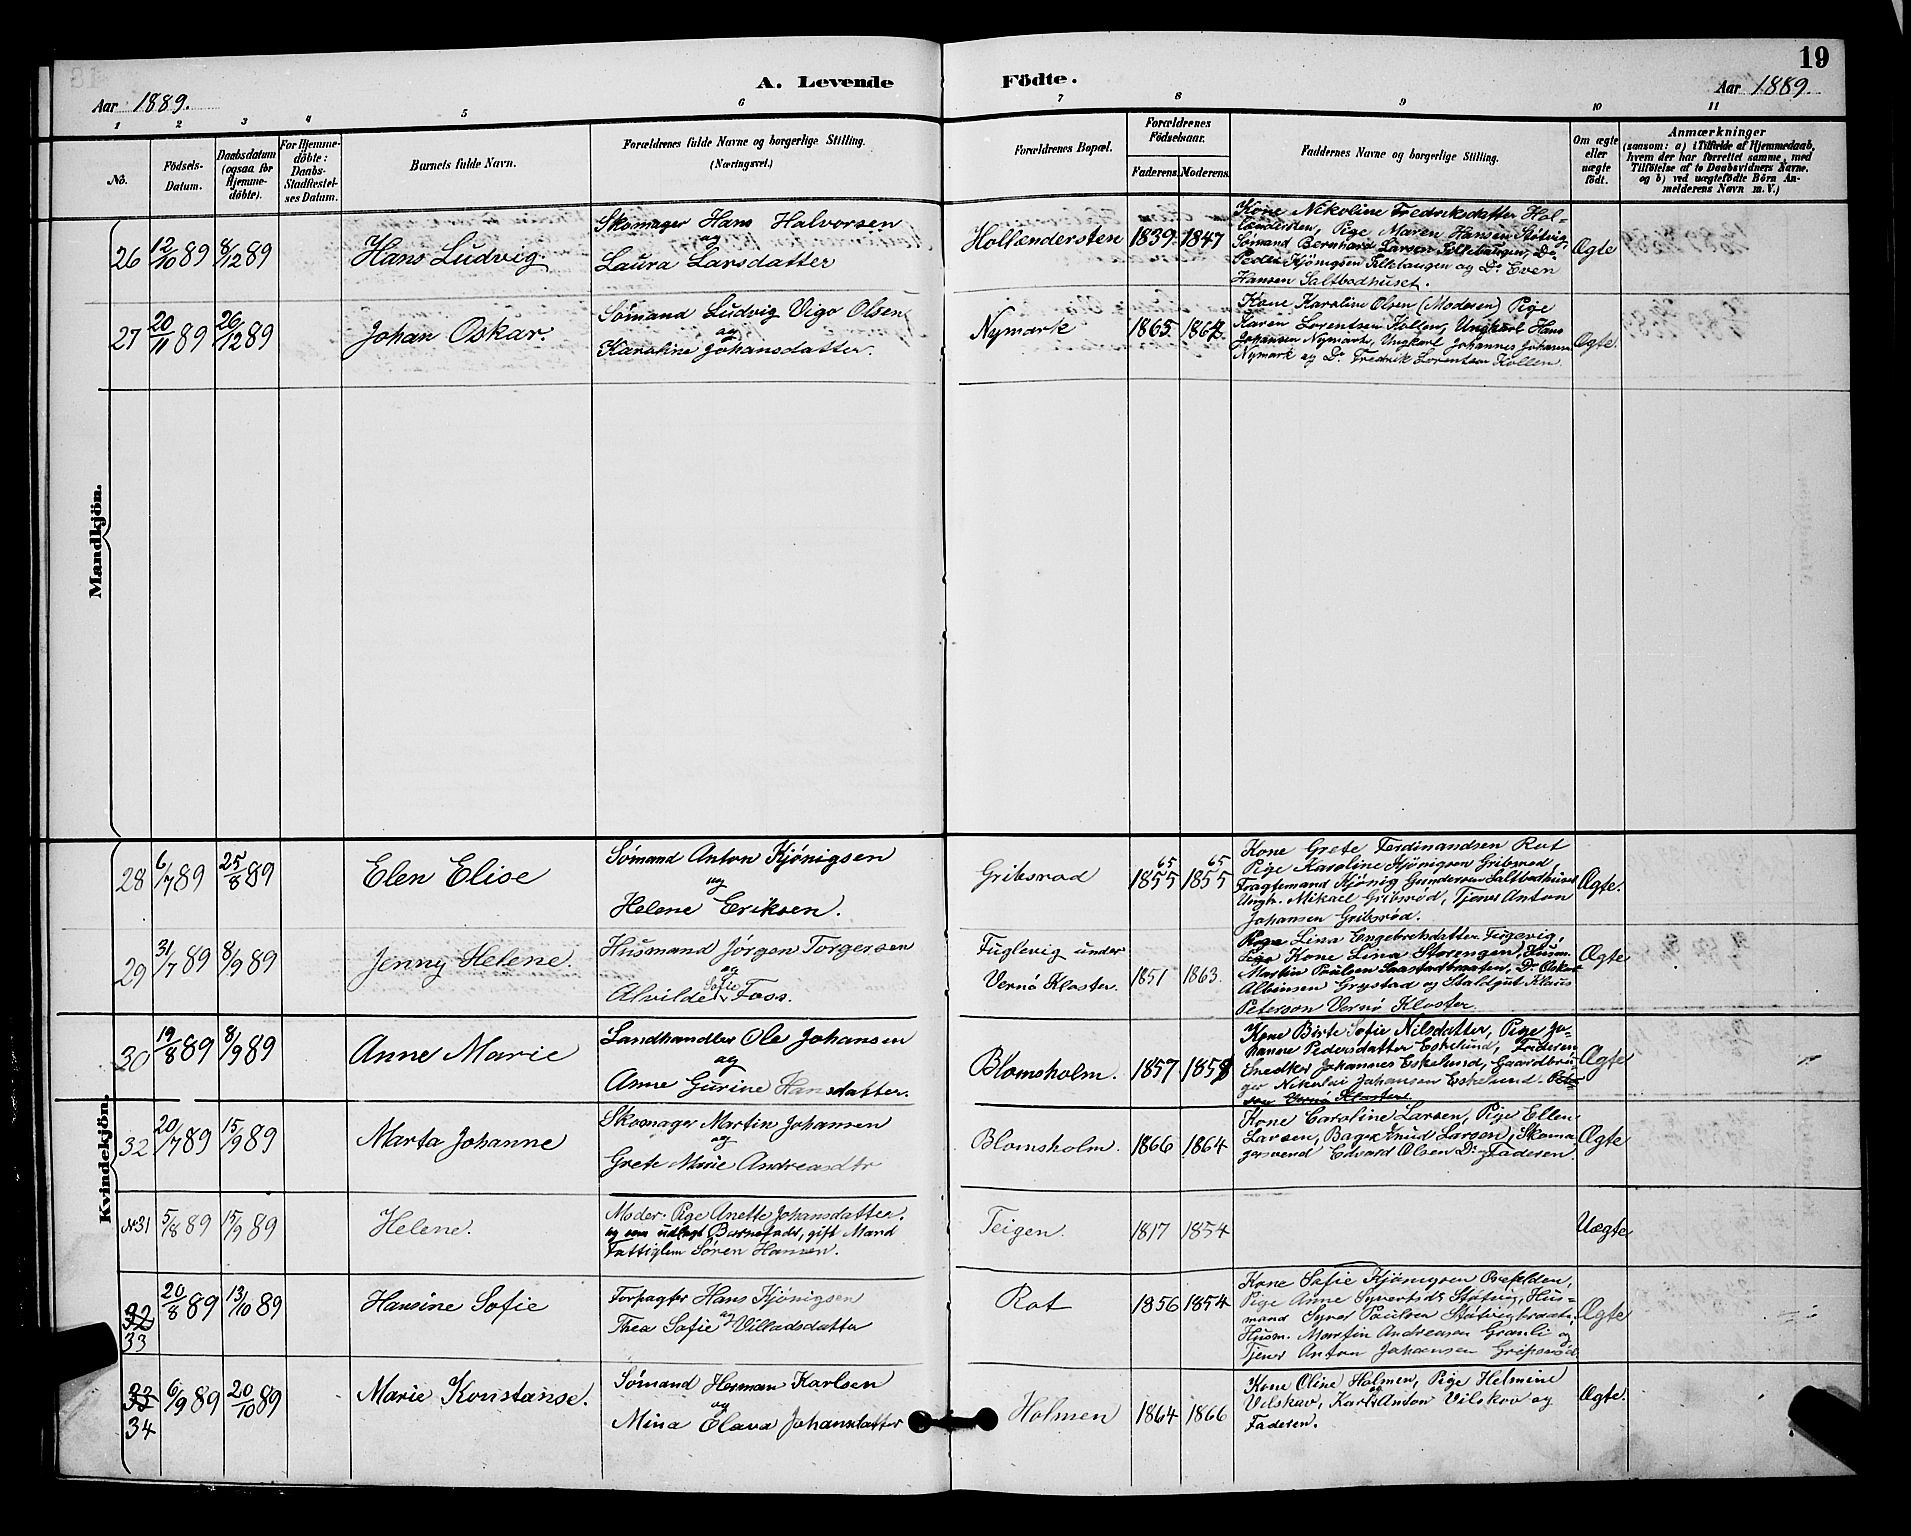 19
A. Levende Födte.
Aar 1889. Aar 1889.
1 2 3 4 5 6 7 8 9 10 11
No.
Födsels-
Datum.
Daabsdatum
(ogsaa for
Hjemme-
döbte).
For Hjemme-
döbte:
Daabs-
Stadfæstel-
ses Datum.
Barnets fulde Navn.
Forældrenes fulde Navne og borgerlige Stilling.
(Næringsvei.)
Forældrenes Bopæl.
Forældrenes
Födselsaar.
Faderens. Moderens.
Faddernes Navne og borgerlige Stilling.
Om ægte
eller
uægte
födt.
Anmærkninger
(saasom: a) i Tilfælde af Hjemmedaab,
hvem der har forrettet samme, med
Tilföielse af to Daabsvidners Navne,
og b) ved uægtefödte Börn An-
melderens Navn m. V.)
Mandkjön.
26 12/10 89 8/12 89 Hans Ludvig.
Skomager Hans Halvorsen
og
Laura Larsdatter
Hollændersten 1839 1847
Kone Nikoline Fredriksdatter Hol-
lændersten, Pige Maren Hansen Støtvig,
Sømand Bernhard Larsen Filkebaugen, Do
Peder Kjönigsen Filkebaugen og Do Even
Hansen Saltbodhuset.
Ægte
27 20/11 89 26/12 89 Johan Oskar.
Sømand Ludvig Vigo Olsen
og
Karoline Johansdatter.
Nymark 1865 1864
Kone Karoline Olsen (Moderen) Pige
Karen Lorentsen Kollen, Ungkarl Hans
Johansen Nymark, Ungkarl Johannes Johansen
Nymark og Do Fredrik Lorentsen Kollen.
Ægte.
Kvindekjön.
28 6/7 89 25/8 89 Elen Elise
Sømand Anton Kjönigsen
og
Helene Eriksen.
Gribsrød
65 65
1855 1855
Kone Grete Ferdinandsen Røt
Pige Karoline Kjönigsen Gribsrød,
Fragtemand Kjönig Gundersen Saltbodhuset
Ungk. Mikael Gribsrød, Tjener Anton
Johansen Gribsrød.
Ægte.
29 31/7 89 8/9 89 Jenny Helene.
Husmand Jörgen Torgersen
og
Alvilde Sofie Foss.
Fuglevig under
Vernø Kloster. 1851 1863.
Pige Lina Engebretsdatter Fuglevig,
Pige Kone Lina Storengen, Husm.
Martin Paulsen Saastadbraaten, Do Oskar
Albinsen Grystad og Staldgut Klaus
Peterson Vernø Kloster
Ægte
30 19/8 89 8/9 89 Anne Marie
Landhandler Ole Johansen
og
Anne Gurine Hansdatter.
Blomsholm. 1857 1858
Kone Birte Sofie Nilsdatter, Pige Jo-
hanne Pedersdatter Eskelund, Faderen
Snedker Johannes Eskelund, Gaardbru-
ger Nikolai Johansen Eskelund. Peter-
son Vernø Kloster
Ægte
32 20/7 89 15/9 89 Marta Johanne
Skomager Martin Johansen
og
Grete Marie Andreasdtr
Blomsholm. 1866 1864
Kone Caroline Larsen, Pige Ellen
Larsen, Bager Knud Larsen, Skoma-
gersvend Edvard Olsen Do, Faderen.
Ægte
No 31 5/8 89 15/9 89 Helene.
Moder. Pige Anette Johansdatter.
og som udlagt Barnefader, gift Mand
Fattiglem Sören Hansen.
Teigen. 1817 1854
Uægte
32
33 20/8 89 13/10 89 Hansine Sofie
Forpagter Hans Kjönigsen
og
Thea Sofie Villadsdatter
Røt 1856 1854
Kone Sofie Kjönigsen
Pige Anne Syvertsd. Støtvig, Hus-
mand Syver Paulsen Støtvigbraaten,
Husm. Martin Andreasen Granli og
Tjener Anton Johansen Gripsrød.
Ægte
33
34 6/9 89 20/10 89 Marie Konstanse.
Sømand Herman Karlsen
og
Mina Elava Johansdatter
Holmen 1864 1866
Kone Oline Holmen, Pige Helmine
Vilskov, Karl og Anton Vilskov og
Faderen.
Ægte.